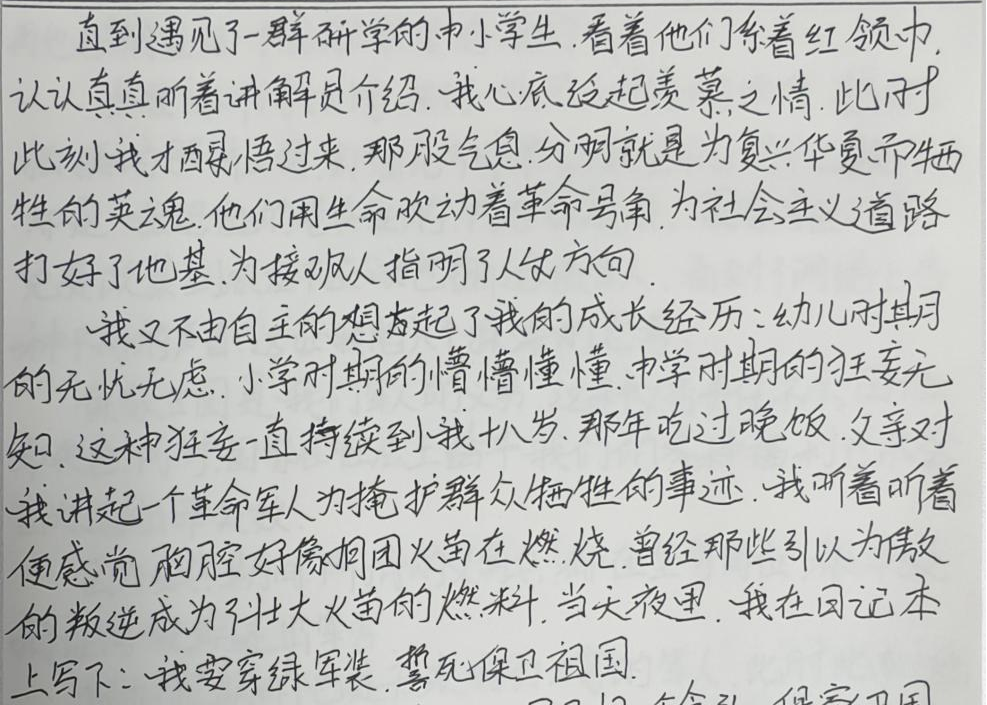 直到遇见了一群研学的中小学生.看着他们系着红领巾,
认认真真听着讲解员介绍.我心底泛起羡慕之情.此时
此刻我才醒悟过来.那股气息.分明就是为复兴华夏而牺
牲的英魂.他们用生命吹动着革命号角.为社会主义道路
打好了地基.为接班人指明了人生方向.
我又不由自主的想起了我的成长经历:幼儿时期
的无忧无虑.小学时期的懵懵懂懂.中学时期的狂妄无
知.这种狂妄一直持续到我十八岁.那年吃过晚饭.父亲对
我讲起一个革命军人为掩护群众牺牲的事迹.我听着听着
便感觉胸腔好像有团火苗在燃烧.曾经那些引以为傲
的叛逆成为了壮大火苗的燃料.当天夜里.我在日记本
上写下:我要穿绿军装.誓死保卫祖国.
保家卫国